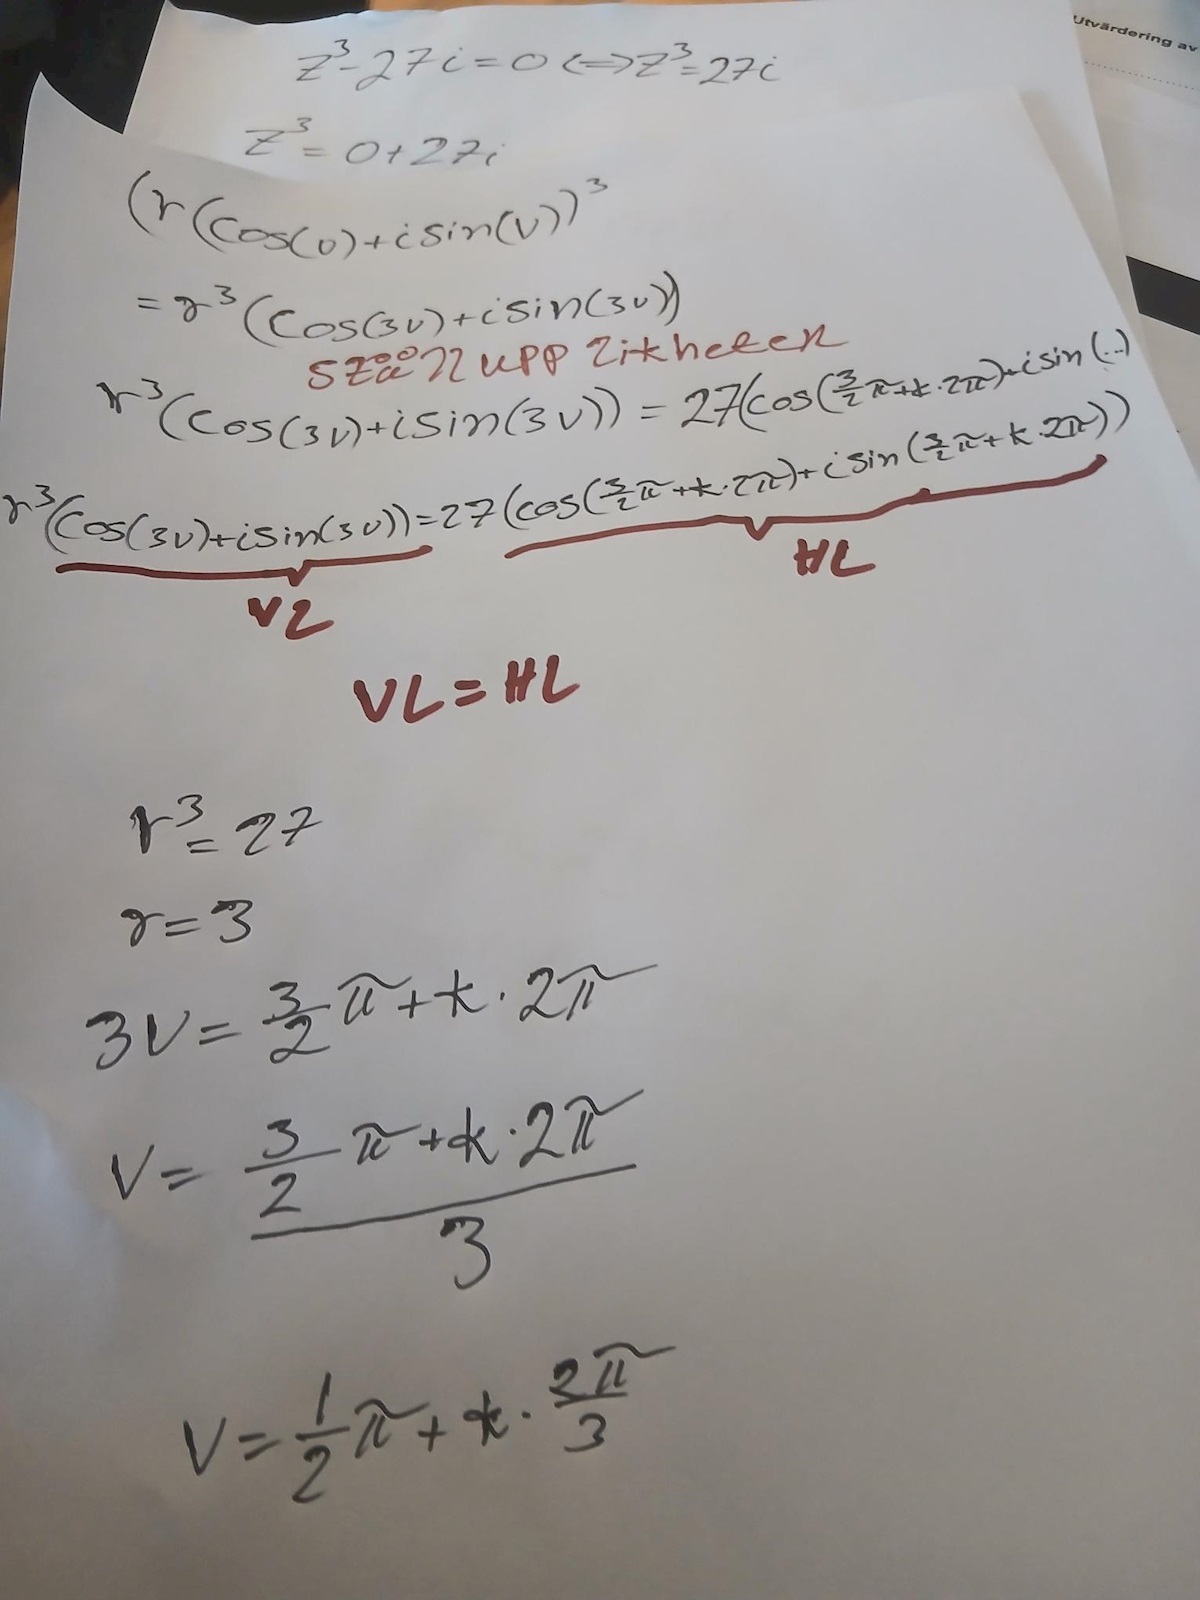 Utvärdering av
z³-27i=0⇔z³=27i
z³=0+27i
(r(cos(v)+isin(v))³
=r³(cos(3v)+isin(3v))
ställ upp likheten
r³(cos(3v)+isin(3v))=27(cos(3/2π+k·2π)+isin(..)
r³(cos(3v)+isin(3v))=27(cos(3/2π+k·2π)+isin(3/2π+k·2π))
VL HL
VL=HL
r³=27
r=3
3v=3/2π+k·2π
v=(3/2π+k·2π)/3
v=1/2π+k·2π/3